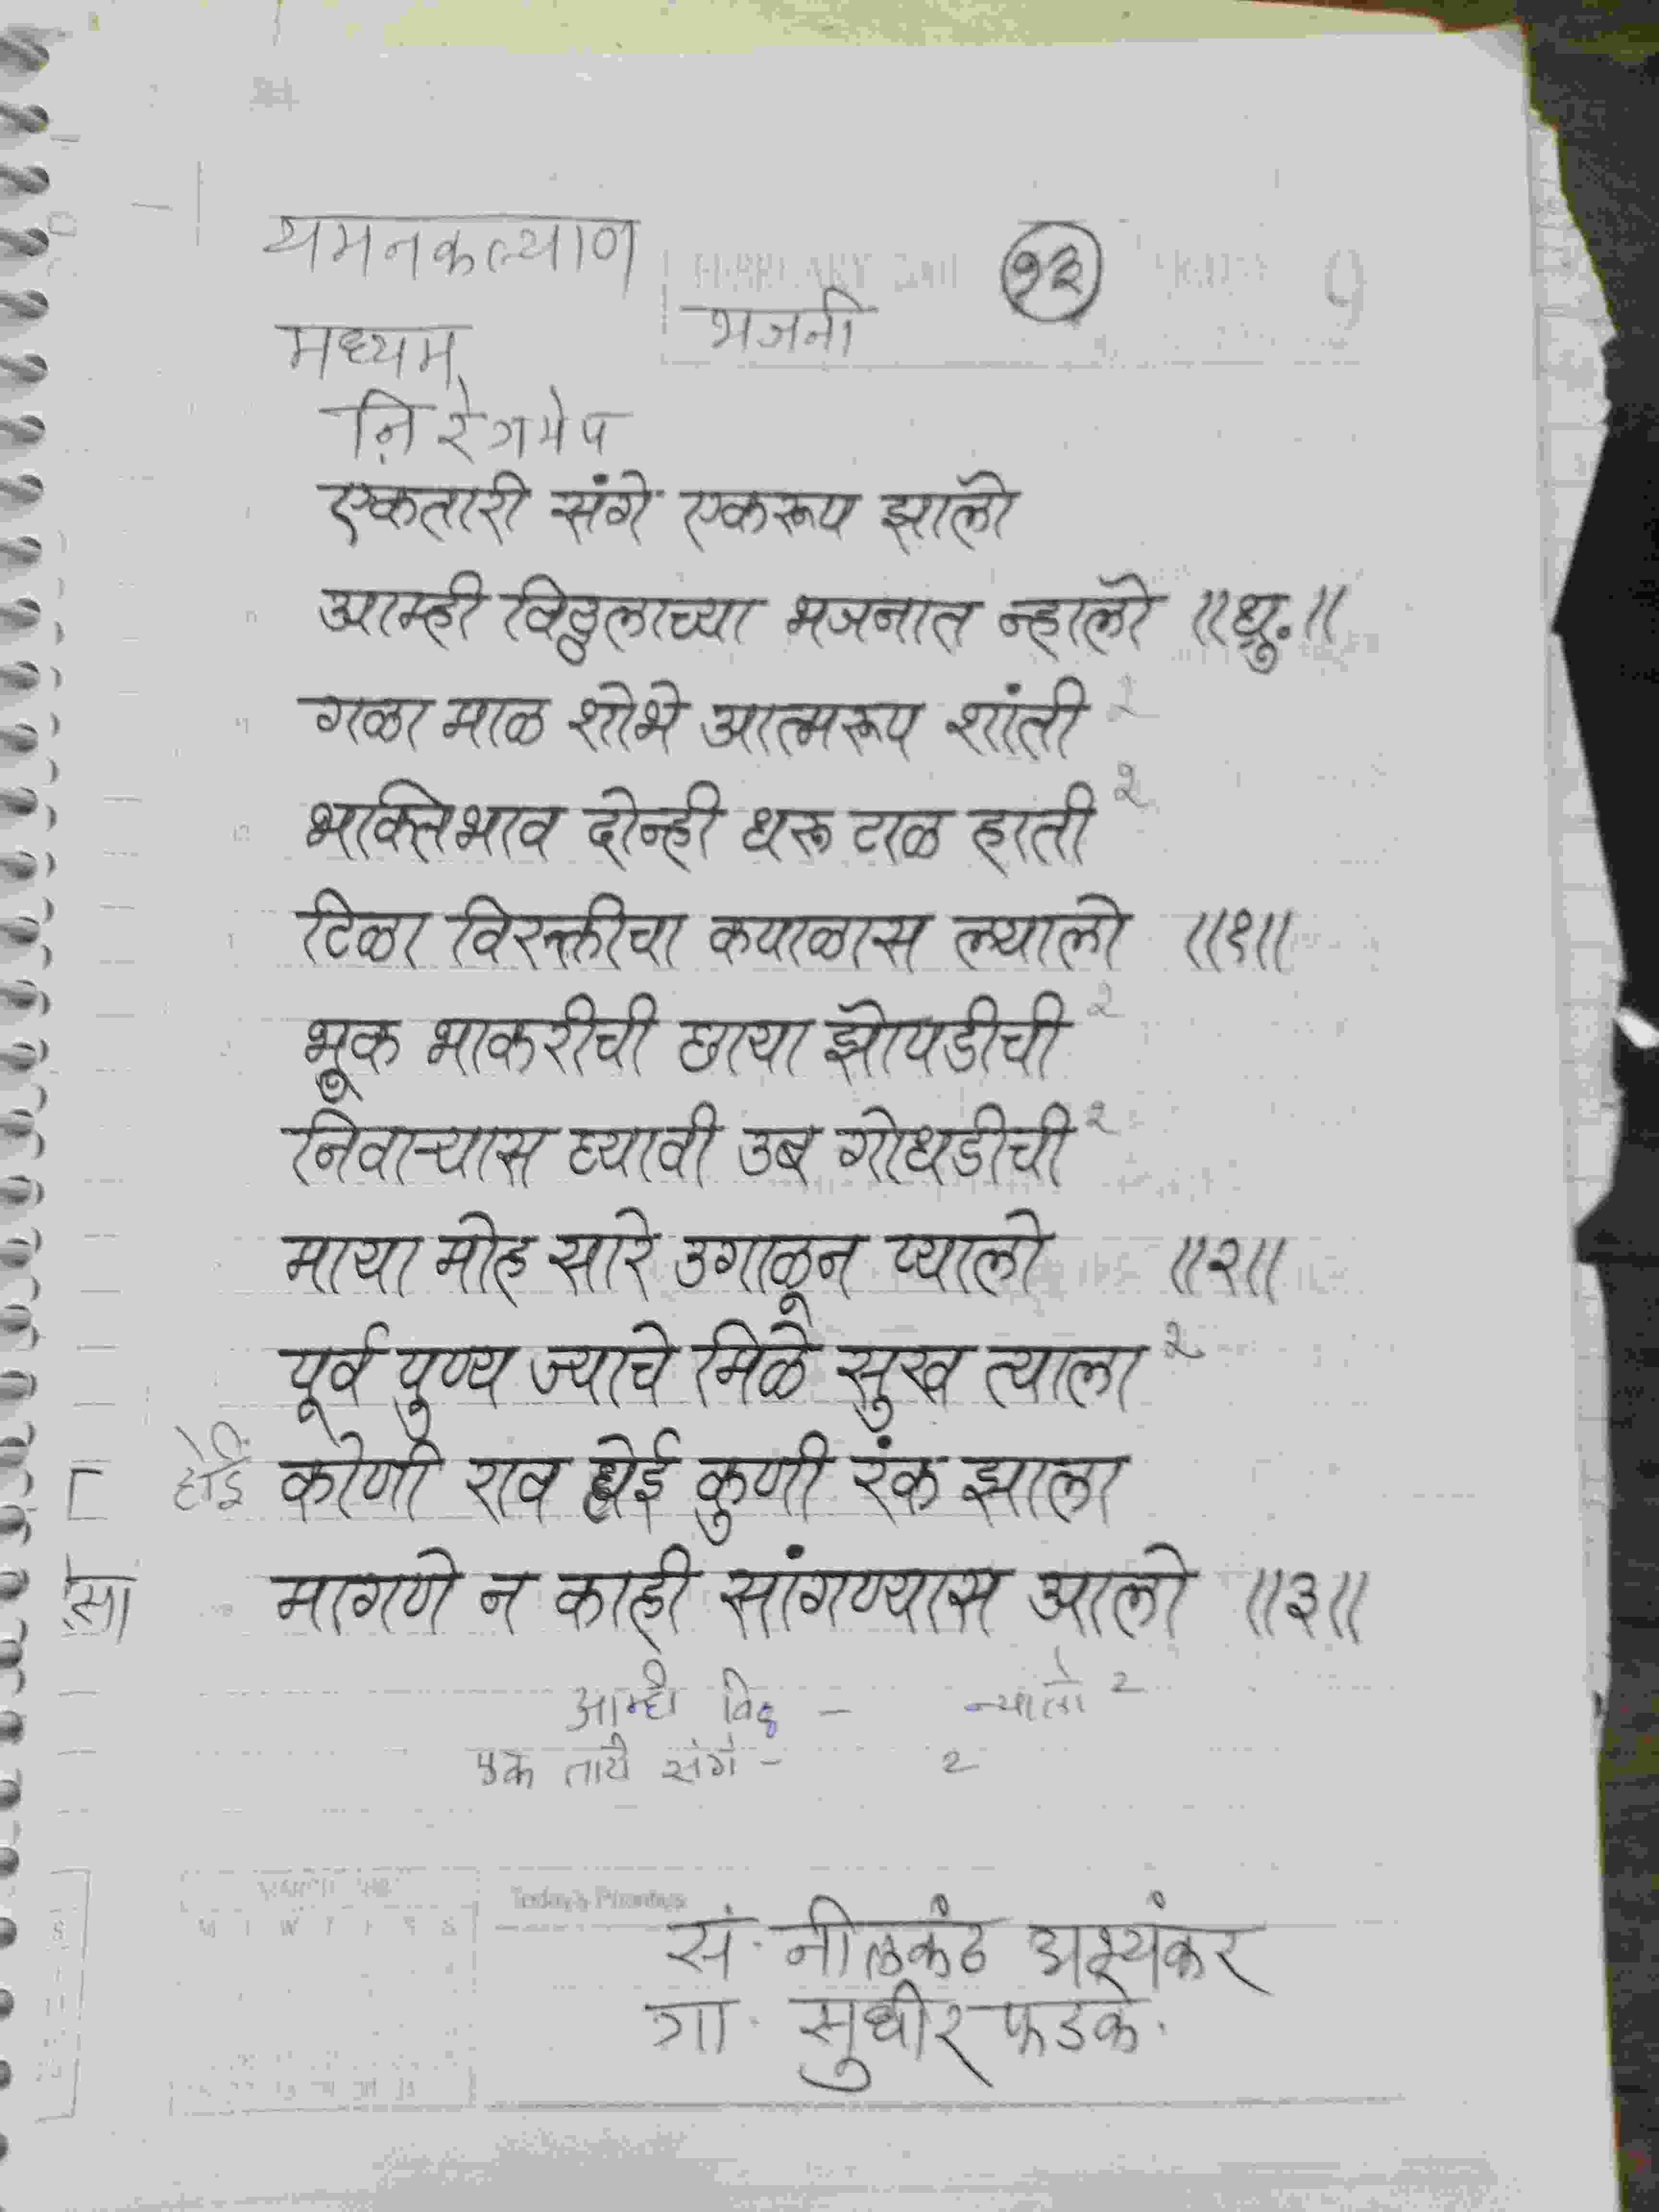 यमनकल्याण १३
भजनी
मध्यम
ऩि रे ग मे प
एकतारी संगे एकरूप झालो
आम्ही विठ्ठलाच्या भजनात न्हालो ॥ध्रु.॥
गळा माळ शोभे आत्मरूप शांती २
भक्तिभाव दोन्ही धरू टाळ हाती २
टिळा विरक्तीचा कपाळास ल्यालो ॥१॥
भूक भाकरीची छाया झोपडीची २
निवाऱ्यास घ्यावी उब गोधडीची २
माया मोह सारे उगाळून प्यालो ॥२॥
पूर्व पुण्य ज्याचे मिळे सुख त्याला २
होई कोणी राव होई कुणी रंक झाला
सा मागणे न काही सांगण्यास आलो ॥३॥
आम्ही विठ्ठ – न्यालो २
एक तारी संगे – २
Today's Priorities
सं. नीलकंठ अभ्यंकर
गा. सुधीर फडके.